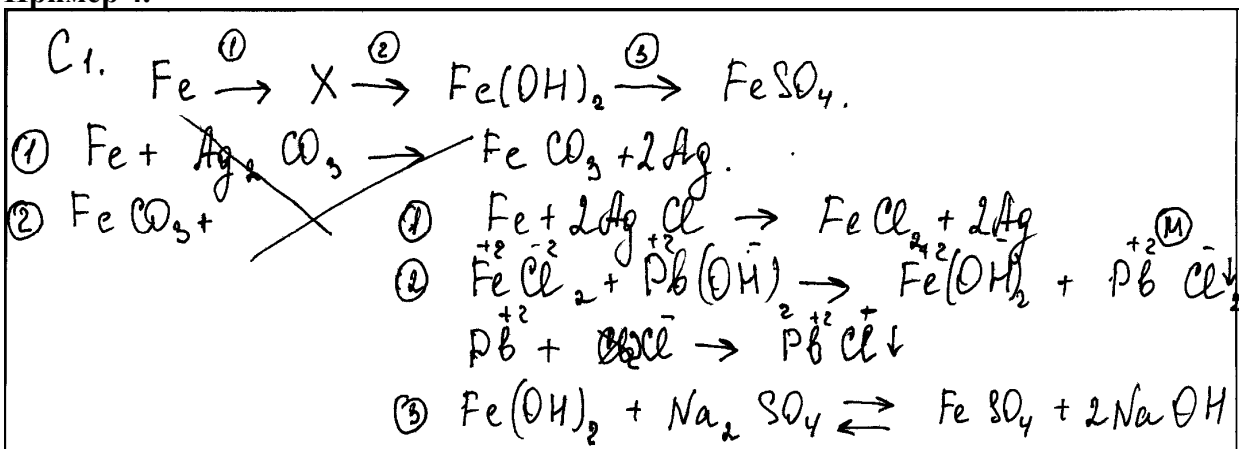 Пример 4.
C1. Fe ①→ X ②→ Fe(OH)₂ ③→ FeSO₄.
① Fe + Ag₂CO₃ → FeCO₃ + 2Ag.
② FeCO₃ +
① Fe + 2AgCl → FeCl₂ + 2Ag
② Fe⁺²Cl⁻²₂ + Pb⁺²(OH⁻)₂ → Fe⁺²(OH⁻)₂ + Pb⁺²Cl⁻₂↓ Ⓜ
Pb⁺² + Cl⁻ → Pb⁺²Cl↓
③ Fe(OH)₂ + Na₂SO₄ ⇄ FeSO₄ + 2NaOH